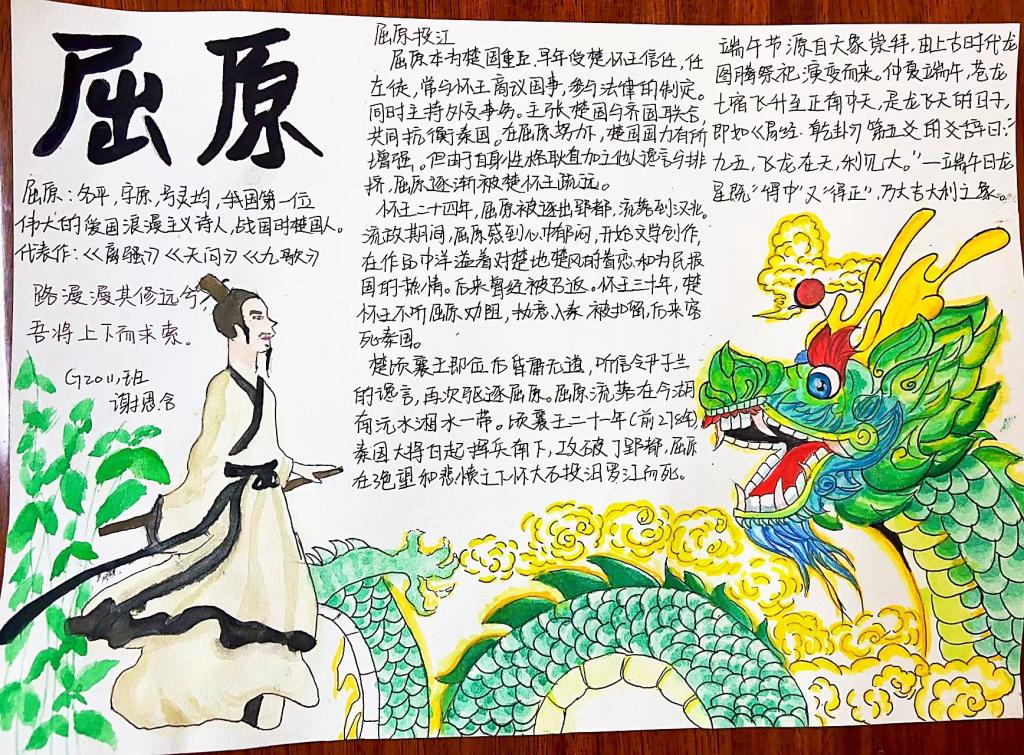 屈原
屈原：名平，字原，号灵均，我国第一位
伟大的爱国浪漫主义诗人，战国时楚国人。
代表作：《离骚》《天问》《九歌》
路漫漫其修远兮，
吾将上下而求索。
G2011班
谢思含
屈原投江
屈原本为楚国重臣，早年受楚怀王信任，任
左徒，常与怀王商议国事，参与法律的制定。
同时主持外交事务。主张楚国与齐国联合，
共同抗衡秦国。在屈原努力下，楚国国力有所
增强。但由于自身性格耿直加之他人谗言与排
挤，屈原逐渐被楚怀王疏远。
怀王二十四年，屈原被逐出郢都，流落到汉北。
流放期间，屈原感到心中郁闷，开始文学创作，
在作品中洋溢着对楚地楚风的眷恋和为民报
国的热情。后来曾经被召返。怀王三十年，楚
怀王不听屈原劝阻，执意入秦，被扣留，后来客
死秦国。
楚顷襄王即位后昏庸无道，听信令尹子兰
的谗言，再次驱逐屈原。屈原流落在今湖
南沅水湘水一带。顷襄王二十一年(前278年)
秦国大将白起挥兵南下，攻破了郢都，屈原
在绝望和悲愤之下怀大石投汨罗江而死。
端午节源自天象崇拜，由上古时代龙
图腾祭祀演变而来。仲夏端午，苍龙
七宿飞升至正南中天，是龙飞天的日子，
即如《易经·乾卦》第五爻的爻辞曰：“
九五，飞龙在天，利见大。”—端午日龙
星既“得中”又“得正”，乃大吉大利之象。